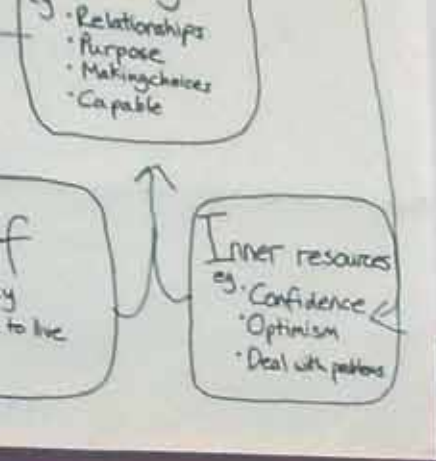 · Relationships
· Purpose
· Makingchoices
· Capable
f
y
to live
Inner resources
eg. · Confidence
· Optimism
· Deal with problems